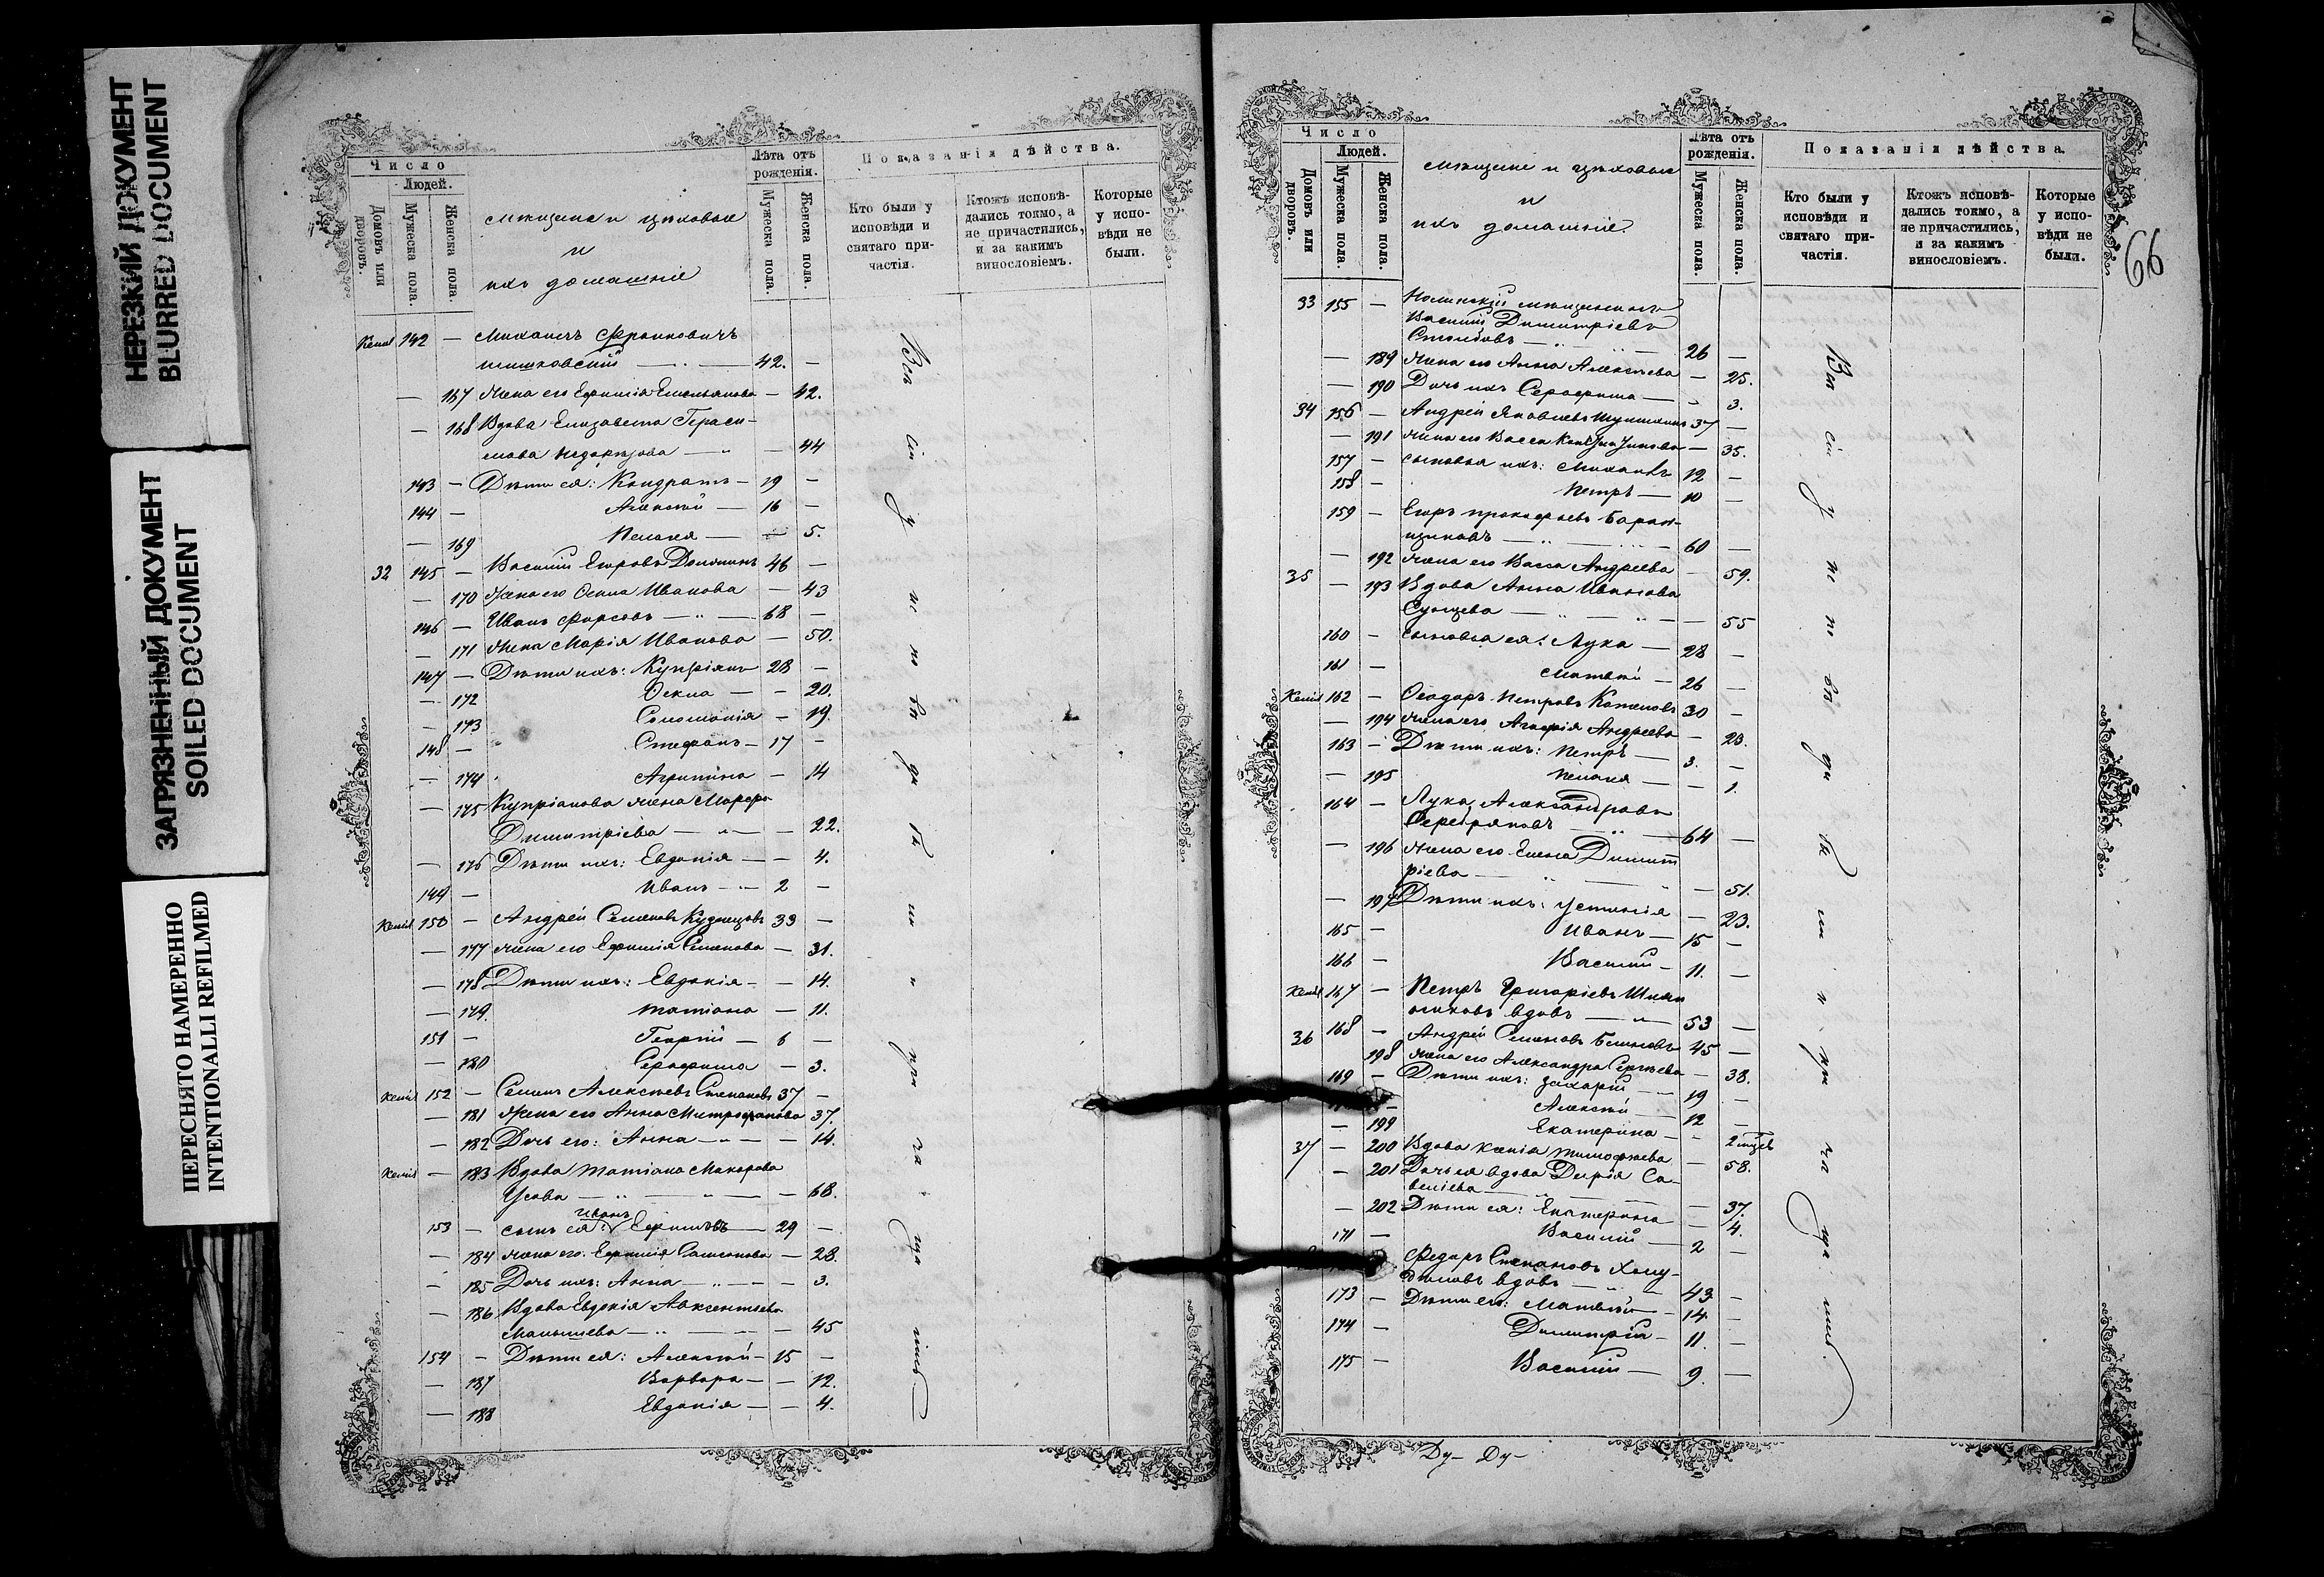 НЕРЕЗКИЙ ДОКУМЕНТ
BLURRED DOCUMENT
ЗАГРЯЗНЕННЫЙ ДОКУМЕНТ
SOILED DOCUMENT
ПЕРЕСНЯТО НАМЕРЕННО
INTENTIONALLI REFILMED
Число
Людей.
Домовъ или дворовъ.
Мужеска пола.
Женска пола.
мѣщане и цѣховые
и
ихъ домашніе
Лѣта отъ рожденія.
Мужеска пола.
Женска пола.
Показанія дѣйства.
Кто были у исповѣди и святаго причастія.
Ктожъ исповѣдались токмо, а не причастились, и за какимъ винословіемъ.
Которые у исповѣди не были.
142 — Михаилъ Франковичъ
42. —
— 167 Жена его Ефимія Емельянова — 42.
— 168 Вдова Елизавета Гераси-
мова — 44
143 — Дѣти ея: Кондратъ — 19 —
144 — Алексѣй — 16 —
— 169 Пелагея — 5.
32 145 — Василій Егоровъ 46 —
— 170 Жена его Иванова — 43
146 — Иванъ Фирсовъ — 68 —
— 171 Жена Марія Иванова — 50.
147 — Дѣти ихъ: Купріянъ 28 —
— 172 — 20.
— 173 Соломонія — 19.
148 — Стефанъ — 17 —
— 174 Агрипина — 14
— 175 Купріанова жена Марфа
Димитріева — 22.
— 176 Дѣти ихъ: Евдокія — 4.
149 — Иванъ — 2 —
150 — Андрей Семеновъ Кузнецовъ 33 —
— 177 жена его Ефимія Семенова — 31.
— 178 Дѣти ихъ: Евдокія — 14.
— 179. Татіана — 11.
151 — Георгій — 6 —
— 180 Серафима — 3.
152 — Семенъ Алексѣевъ Степановъ 37 —
— 181 Жена его Анна Митрофанова 37.
— 182 Дочь его: Анна — 14.
— 183 Вдова Татіана Макарова
Усова — 68.
Иванъ
153 — сынъ ея: Ефимовъ — 29 —
— 184 жена его: Ефимія — 28.
— 185 Дочь ихъ: Анна — 3.
— 186 Вдова Евдокія Авксентьева
Малышева — 45
154 — Дѣти ея: Алексѣй — 15 —
— 187 Варвара — 12.
— 188 Евдокія — 4.
Всѣ сіи у исповѣди были и причащались
Число
Людей.
Домовъ или дворовъ.
Мужеска пола.
Женска пола.
мѣщане и цѣховые
и
ихъ домашніе.
Лѣта отъ рожденія.
Мужеска пола.
Женска пола.
Показанія дѣйства.
Кто были у исповѣди и святаго причастія.
Ктожъ исповѣдались токмо, а не причастились, и за какимъ винословіемъ.
Которые у исповѣди не были.
66
33 155 —
Василій Димитріевъ
Столбовъ — 26 —
— 189 жена его Анна Алексѣева — 25.
— 190 Дочь ихъ Серафима — 3.
34 156 — Андрей Яковлевъ 37 —
— 191 жена его Васса — 35.
157 — сыновья ихъ: Михаилъ 12 —
158 — Петръ — 10 —
159 — Егоръ Прокофьевъ Баран-
щиковъ — 60 —
— 192 жена его Васса Андреева — 59.
35 — 193 Вдова Анна Иванова
— 55
160 — сыновья ея: Лука — 28 —
161 — Матвей — 26 —
162 — Ѳеодоръ Петровъ 30 —
— 194 жена его Андреева — 23.
163 — Дѣти ихъ: Петръ — 3. —
— 195 Пелагея — 1.
164 — Лука Александровъ
Серебряковъ — 64 —
— 196 жена его Елена Димит
ріева — 51.
— 197 Дѣти ихъ: Устинія — 23.
165 — Иванъ — 15 —
166 — Василій — 11. —
167 — Петръ Григоріевъ
вдовъ — 53 —
36 168 — Андрей Семеновъ 45 —
198 жена его Александра Сергѣева — 38.
169 — Дѣти ихъ: Захарій — 19 —
— Алексѣй — 12 —
— 199 Екатерина —
37 — 200 Вдова Ксенія Тимофеева — 58.
— 201 Дочь ея вдова Дарія Са-
веліева — 37.
— 202 Дѣти ея: Екатерина — 4.
171 — Василій — 2 —
Федоръ Степановъ
вдовъ — 43 —
173 — Дѣти его: Матвѣй — 14. —
174 — Димитрій — 11. —
175 — Василій — 9. —
Всѣ сіи у исповѣди были и причащались.
Ду- Ду-